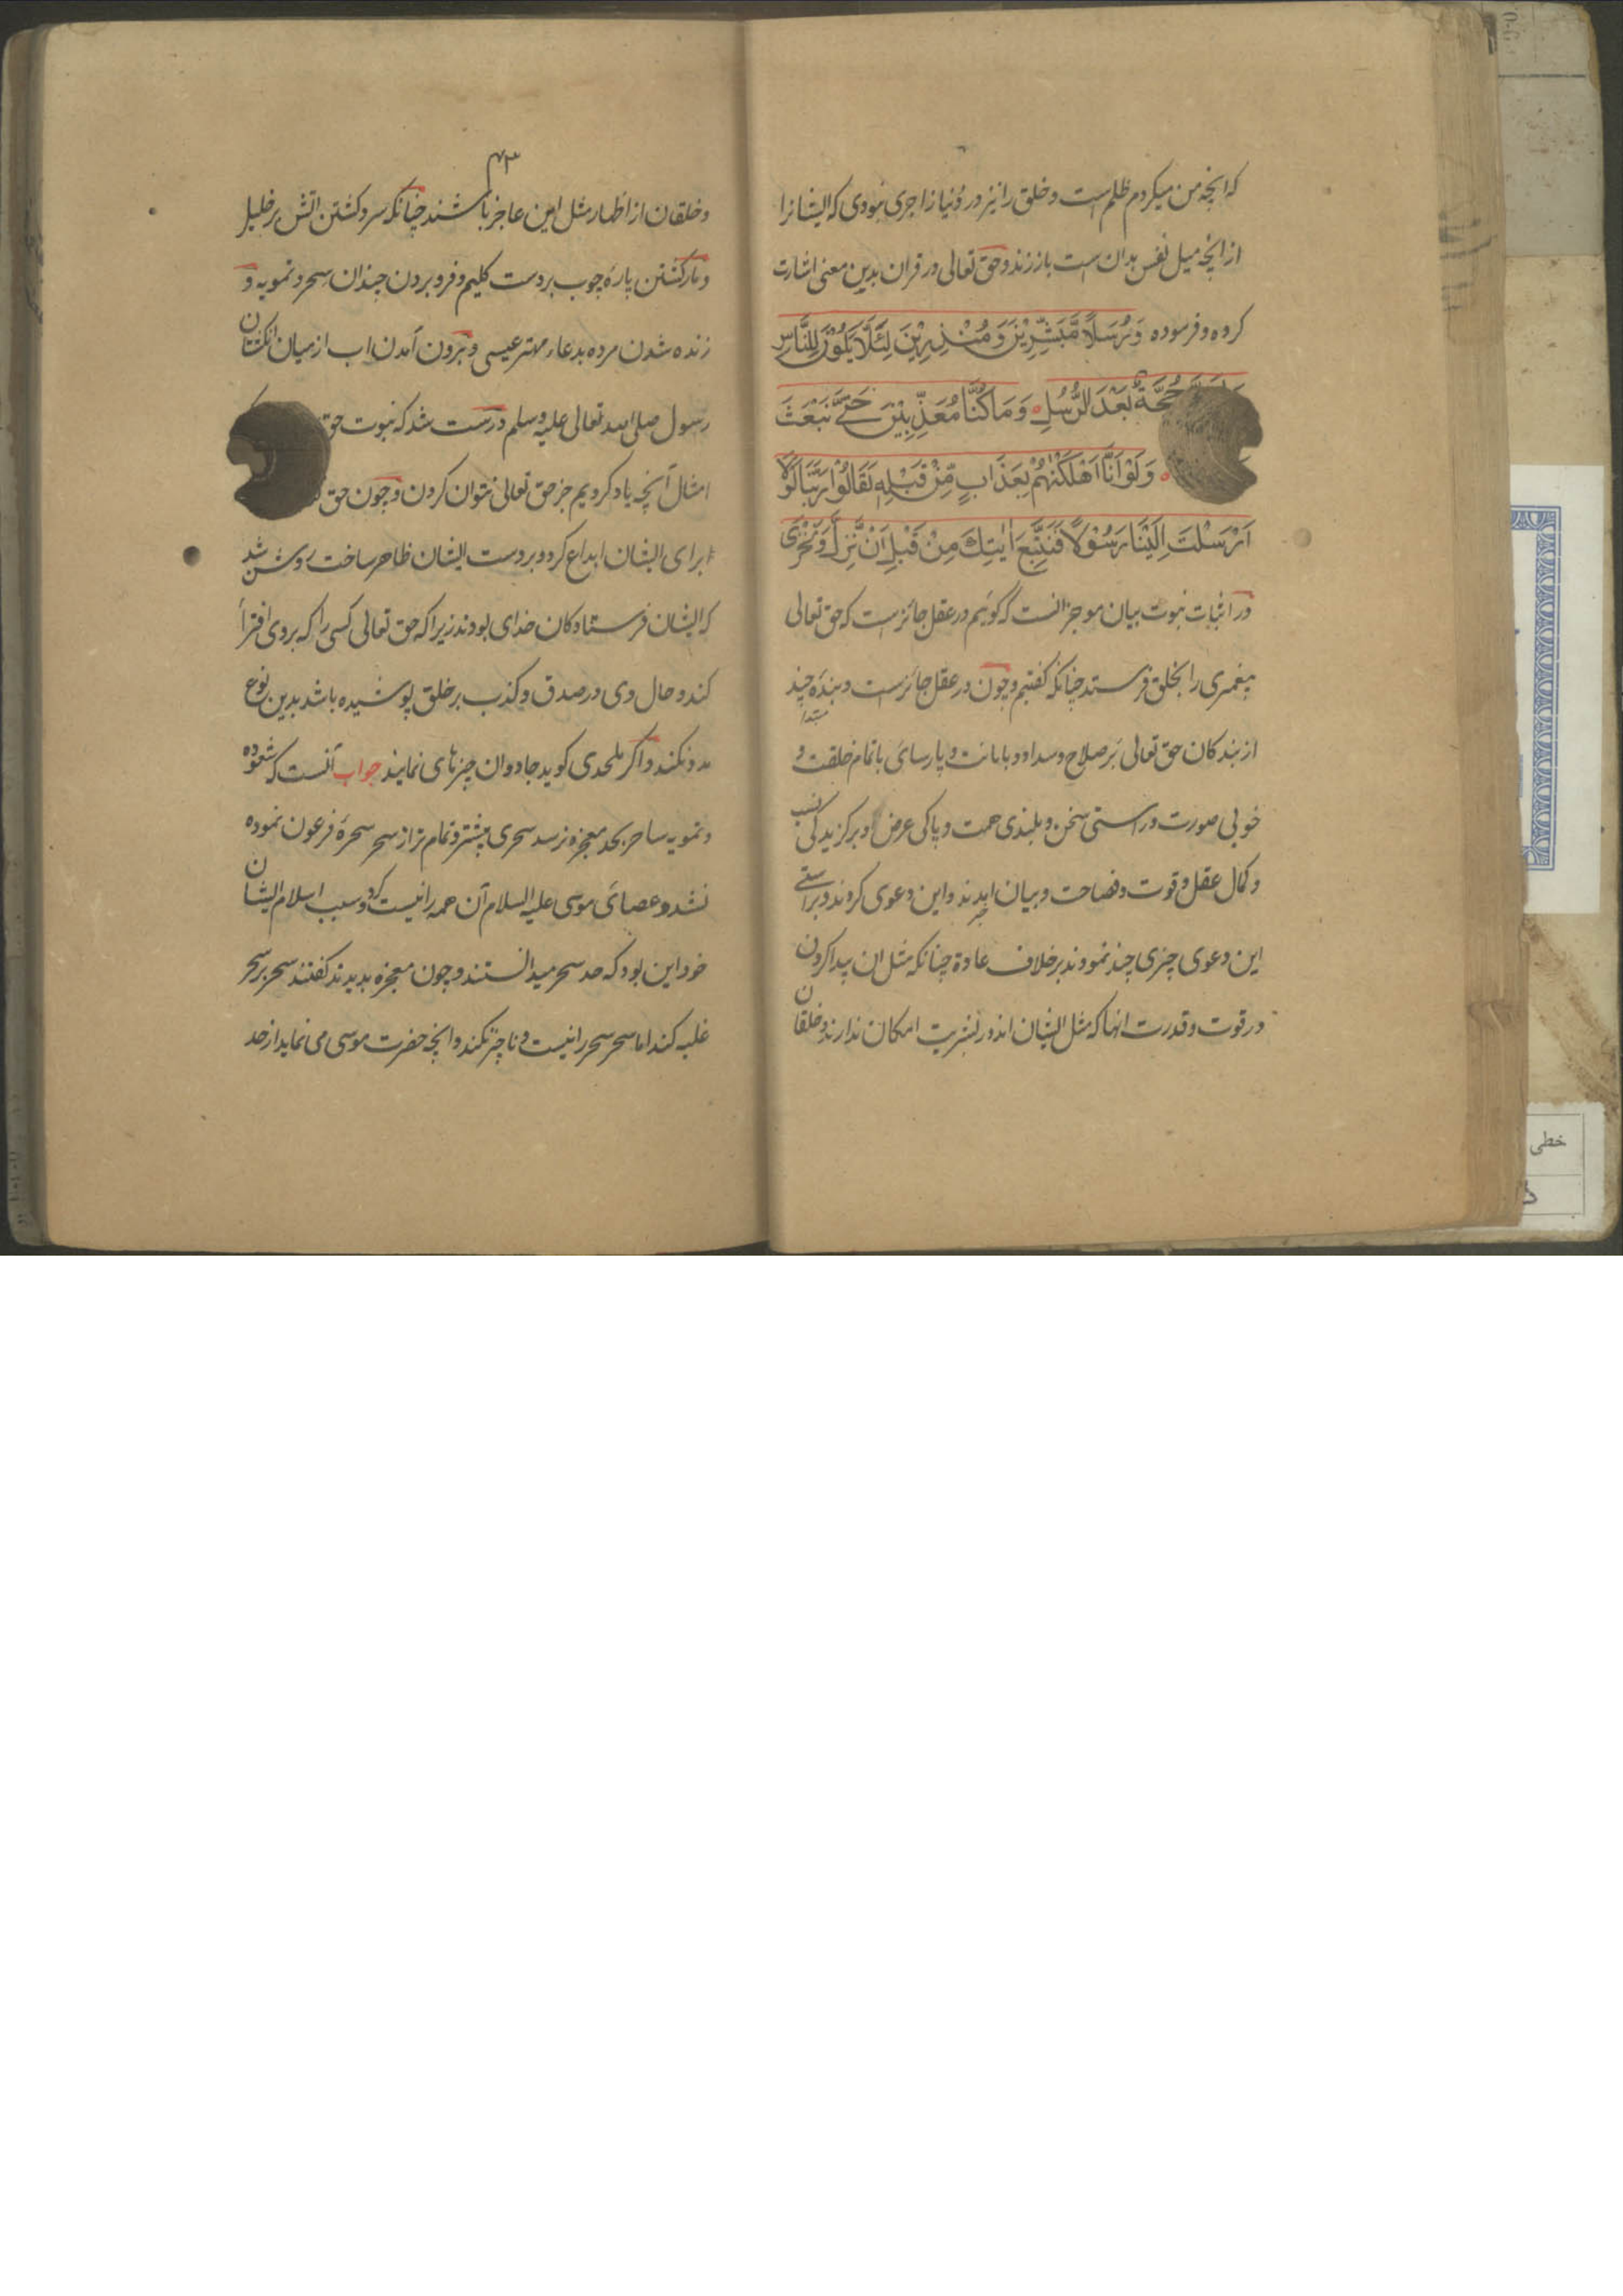 که انچه من میکردم ظلم است و خلق را نیز در دنیا زاجری نبودی که ایشانرا
از انچه میل نفس بدان است باز زند و حق تعالی در قران بدین معنی اشارت
کرده و فرموده وَرُسُلًا مُّبَشِّرِیْنَ وَمُنْذِرِیْنَ لِئَلَّا یَکُوْنَ لِلنَّاسِ
حُجَّةٌ بَعْدَ الرُّسُلِ وَمَا کُنَّا مُعَذِّبِیْنَ حَتَّی نَبْعَثَ
وَلَوْ اَنَّا اَهْلَکْنٰهُمْ بِعَذَابٍ مِّنْ قَبْلِهِ لَقَالُوْا رَبَّنَا لَوْلَا
اَرْسَلْتَ اِلَیْنَا رَسُوْلًا فَنَتَّبِعَ اٰیٰتِكَ مِنْ قَبْلِ اَنْ نَّذِلَّ وَنَخْزٰی
در اثبات نبوت بیان موجز انست که گوئیم در عقل جائز است که حق تعالی
پیغمبری را بخلق فرستد چنانکه گفتیم و چون در عقل جائز است و بندهٔ چند
از بندکان حق تعالی بر صلاح و سداد و با مانت و پارسائی با تمام خلقت و
خوبی صورت و راستی سخن و بلندی همت و پاکی عرض و برکزیدکی نسب
و کمال عقل و قوت و فصاحت و بیان و این دعوی کردند و براستی
این دعوی چیزی چند نمودند بر خلاف عادة چنانکه مثل ان پیدا کردن
در قوت و قدرت انها که مثل ایشان اند در بشریت امکان ندارند و خلقان
۴۳
و خلقان از اظهار مثل این عاجز باشند چنانکه سرد کشتن اتش بر خلیل
و مار کشتن پارهٔ چوب بر دست کلیم و فرو بردن چندان سحر و تمویه و
زنده شدن مرده بدعاء مهتر عیسی و برون آمدن اب از میان انکشتان
رسول صلی الله تعالی علیه وسلم درست شد که نبوت حق
امثال آنچه یاد کردیم جز حق تعالی نتوان کردن و چون حق
برای ایشان ابداع کرد و بر دست ایشان ظاهر ساخت روشن شد
که ایشان فرستادکان خدای بودند زیرا که حق تعالی کسی را که بر وی افترأ
کند و حال وی در صدق و کذب بر خلق پوشیده باشد بدین نوع
مدد نکند و اکر ملحدی کوید جادوان چیزهای نمایند جواب آنست که شعوده
و تمویه ساحر بحد معجزه نرسد سحری بیشتر و تمام تر از سحر سحرهٔ فرعون نموده
نشد و عصائی موسی علیه السلام آن همه را نیست کرد و سبب اسلام ایشان
خود این بود که حد سحر میدانستند و چون معجزه بدیدند کفتند سحر بر سحر
غلبه کند اما سحر سحر را نیست و ناچیز نکند و انچه حضرت موسی می نماید از حد
خطی